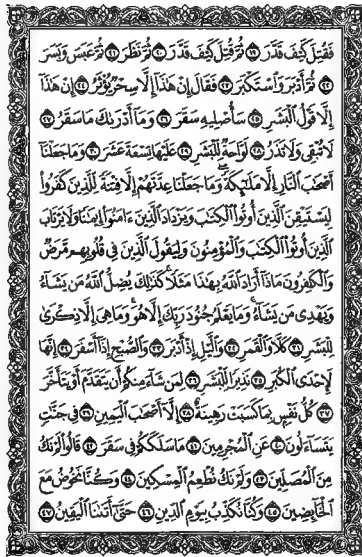 فَقُتِلَ كَيْفَ قَدَّرَ ۝١٩ ثُمَّ قُتِلَ كَيْفَ قَدَّرَ ۝٢٠ ثُمَّ نَظَرَ ۝٢١ ثُمَّ عَبَسَ وَبَسَرَ
۝٢٢ ثُمَّ أَدْبَرَ وَٱسْتَكْبَرَ ۝٢٣ فَقَالَ إِنْ هَٰذَآ إِلَّا سِحْرٌ يُؤْثَرُ ۝٢٤ إِنْ هَٰذَآ
إِلَّا قَوْلُ ٱلْبَشَرِ ۝٢٥ سَأُصْلِيهِ سَقَرَ ۝٢٦ وَمَآ أَدْرَىٰكَ مَا سَقَرُ ۝٢٧
لَا تُبْقِى وَلَا تَذَرُ ۝٢٨ لَوَّاحَةٌ لِّلْبَشَرِ ۝٢٩ عَلَيْهَا تِسْعَةَ عَشَرَ ۝٣٠ وَمَا جَعَلْنَآ
أَصْحَٰبَ ٱلنَّارِ إِلَّا مَلَٰٓئِكَةً وَمَا جَعَلْنَا عِدَّتَهُمْ إِلَّا فِتْنَةً لِّلَّذِينَ كَفَرُوا۟
لِيَسْتَيْقِنَ ٱلَّذِينَ أُوتُوا۟ ٱلْكِتَٰبَ وَيَزْدَادَ ٱلَّذِينَ ءَامَنُوٓا۟ إِيمَٰنًا وَلَا يَرْتَابَ
ٱلَّذِينَ أُوتُوا۟ ٱلْكِتَٰبَ وَٱلْمُؤْمِنُونَ وَلِيَقُولَ ٱلَّذِينَ فِى قُلُوبِهِم مَّرَضٌ
وَٱلْكَٰفِرُونَ مَاذَآ أَرَادَ ٱللَّهُ بِهَٰذَا مَثَلًا كَذَٰلِكَ يُضِلُّ ٱللَّهُ مَن يَشَآءُ
وَيَهْدِى مَن يَشَآءُ وَمَا يَعْلَمُ جُنُودَ رَبِّكَ إِلَّا هُوَ وَمَا هِىَ إِلَّا ذِكْرَىٰ
لِلْبَشَرِ ۝٣١ كَلَّا وَٱلْقَمَرِ ۝٣٢ وَٱلَّيْلِ إِذْ أَدْبَرَ ۝٣٣ وَٱلصُّبْحِ إِذَآ أَسْفَرَ ۝٣٤ إِنَّهَا
لَإِحْدَى ٱلْكُبَرِ ۝٣٥ نَذِيرًا لِّلْبَشَرِ ۝٣٦ لِمَن شَآءَ مِنكُمْ أَن يَتَقَدَّمَ أَوْ يَتَأَخَّرَ
۝٣٧ كُلُّ نَفْسٍۭ بِمَا كَسَبَتْ رَهِينَةٌ ۝٣٨ إِلَّآ أَصْحَٰبَ ٱلْيَمِينِ ۝٣٩ فِى جَنَّٰتٍ
يَتَسَآءَلُونَ ۝٤٠ عَنِ ٱلْمُجْرِمِينَ ۝٤١ مَا سَلَكَكُمْ فِى سَقَرَ ۝٤٢ قَالُوا۟ لَمْ نَكُ
مِنَ ٱلْمُصَلِّينَ ۝٤٣ وَلَمْ نَكُ نُطْعِمُ ٱلْمِسْكِينَ ۝٤٤ وَكُنَّا نَخُوضُ مَعَ
ٱلْخَآئِضِينَ ۝٤٥ وَكُنَّا نُكَذِّبُ بِيَوْمِ ٱلدِّينِ ۝٤٦ حَتَّىٰٓ أَتَىٰنَا ٱلْيَقِينُ ۝٤٧